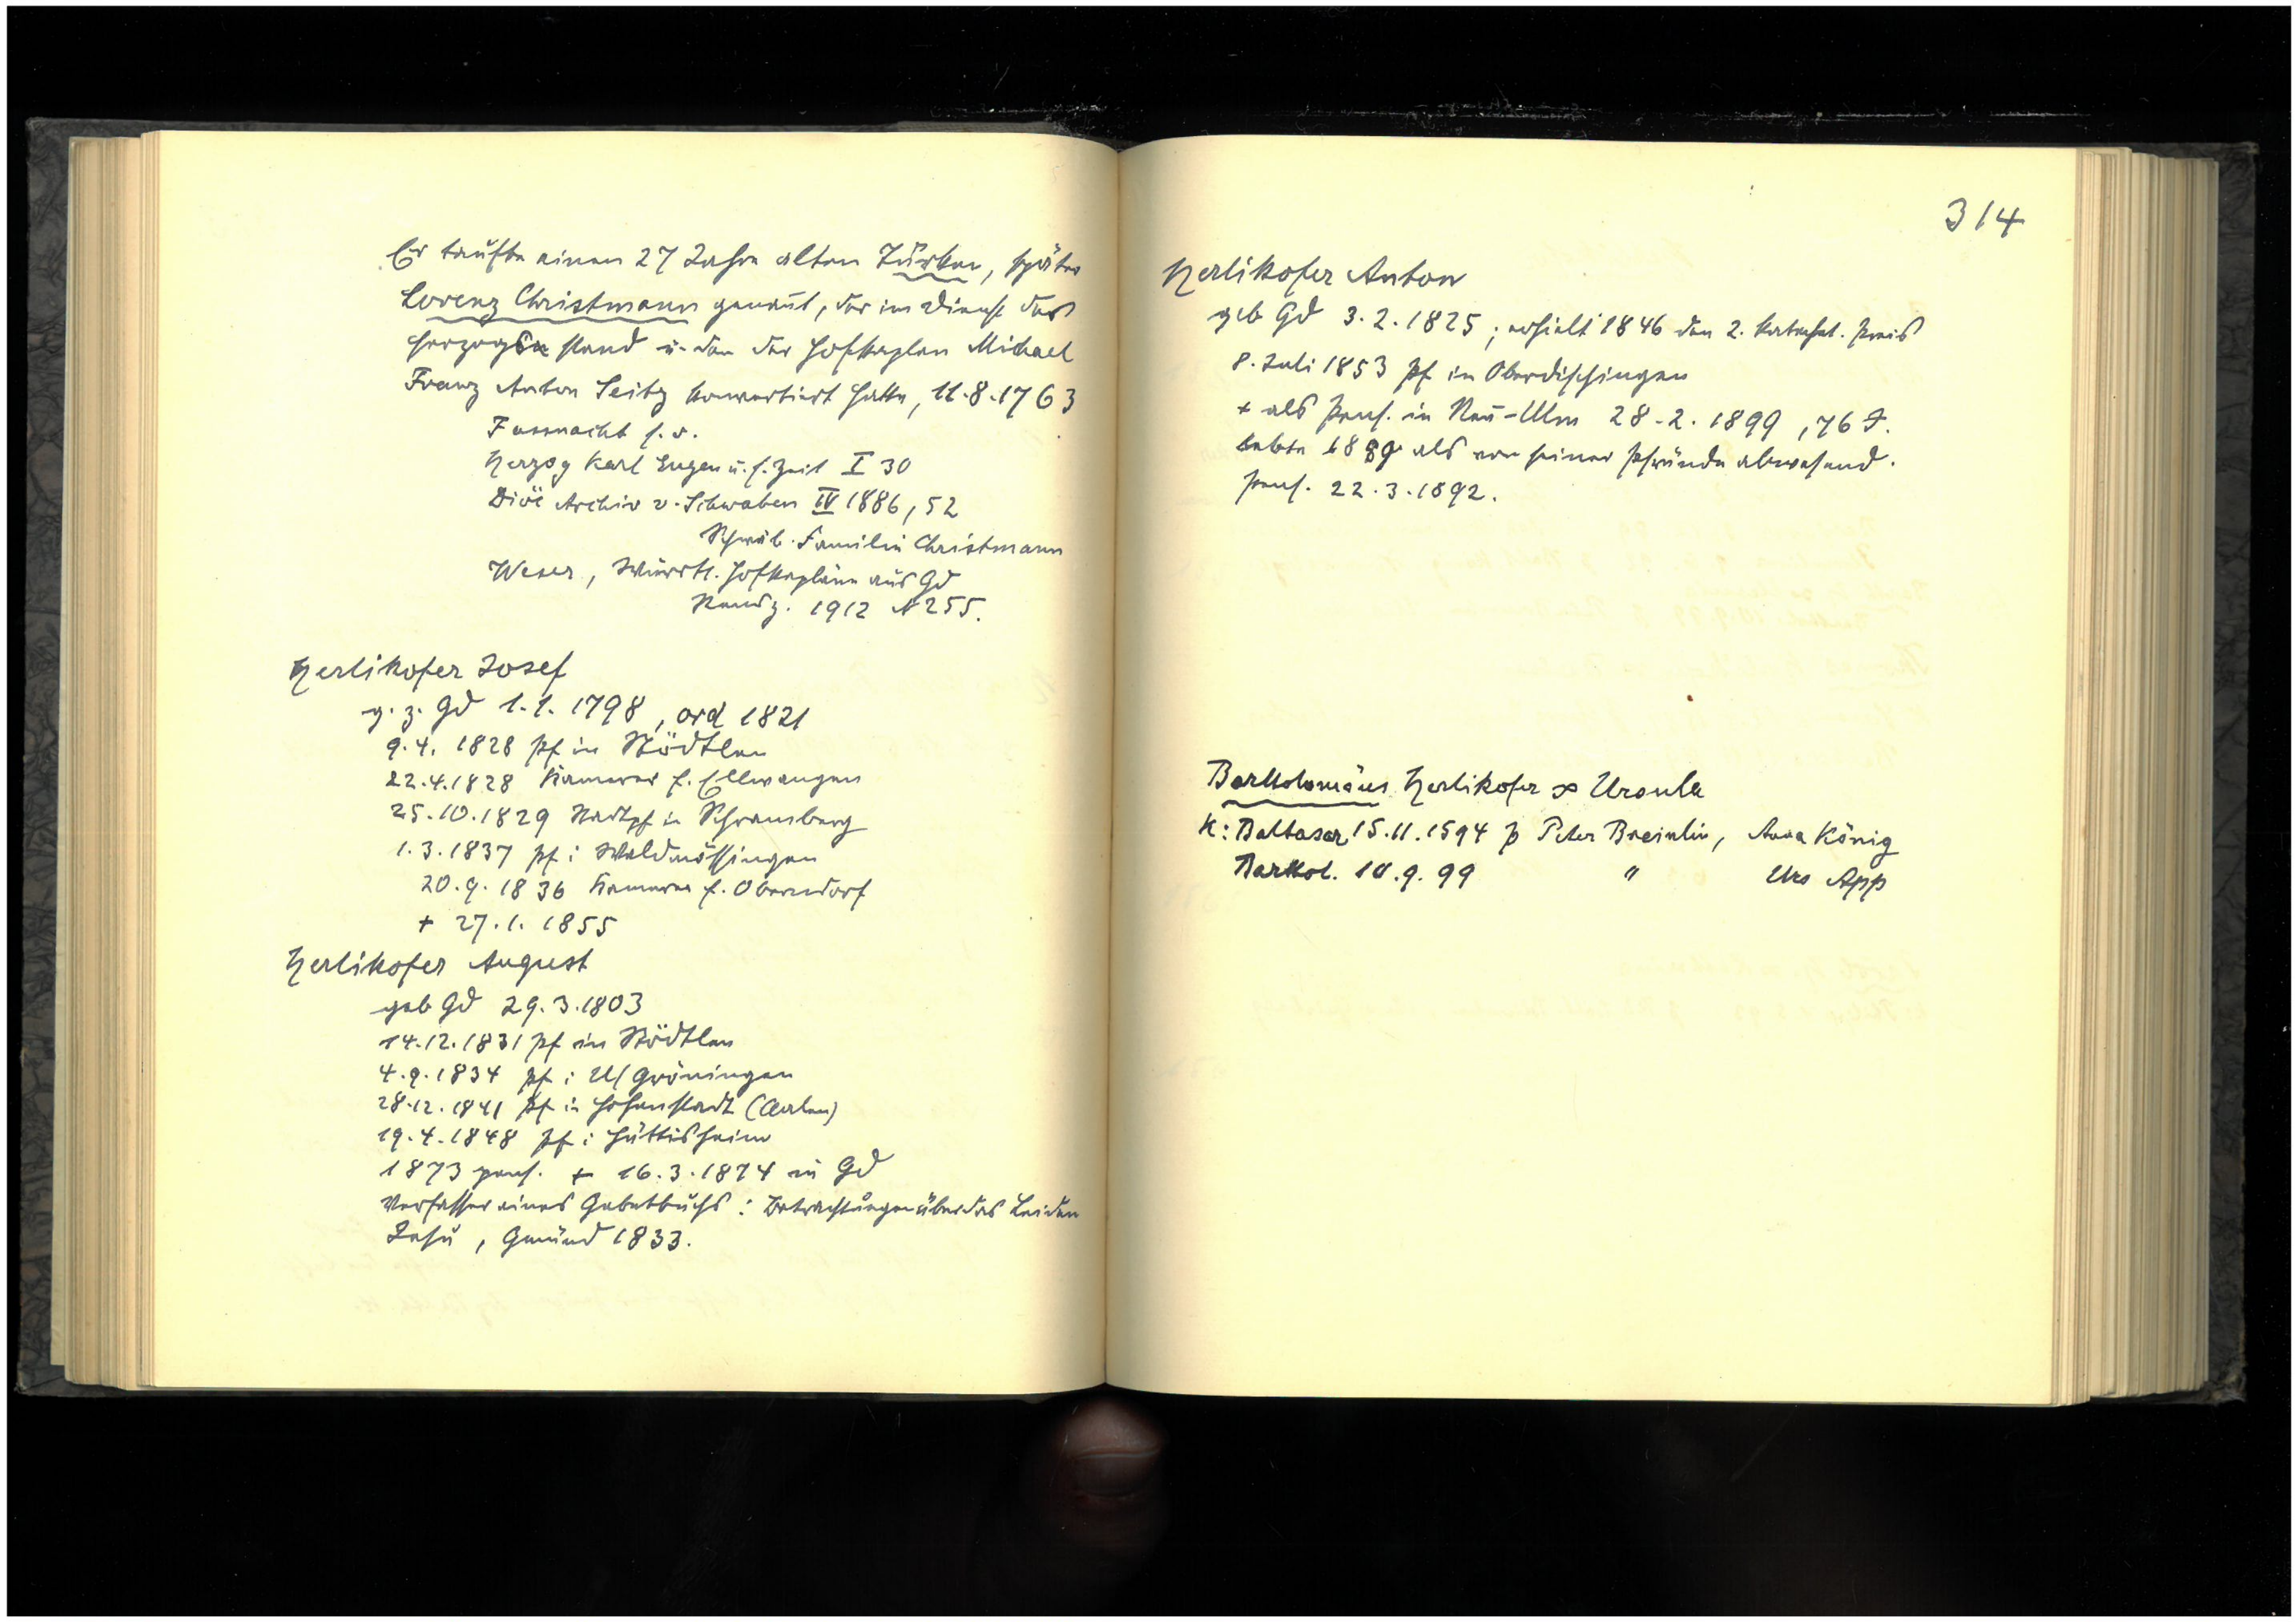 Er taufte einen 27 Jahre alten Türken, später
Lorenz Christmann genannt, der im Dienst des
Herzogs stand u. den der Hofkaplan Michael
Franz Anton Seitz konvertiert hatte, 11.8.1763
Fassnacht s. v.
Herzog Karl Eugen u. s. Zeit I 30
Diöc Archiv v. Schwaben IV 1886, 52
Schwäb. Familie Christmann
Weser, Württ. Hofkapläne aus Gd
Remsz. 1912 N 255.
Herlikofer Josef
g. z. Gd 1.1.1798, ord 1821
9.4.1828 pf in Stödtlen
22.4.1828 Kamerer f. Ellwangen
25.10.1829 Stadtpf in Schramberg
1.3.1837 pf i Waldmössingen
20.9.1836 Kamerer f. Oberndorf
+ 27.1.1855
Herlikofer August
geb Gd 29.3.1803
14.12.1831 pf in Stödtlen
4.9.1834 pf i U/Gröningen
28.12.1841 pf i Hohenstadt (Aalen)
19.4.1848 pf i Hüttisheim
1873 pens. + 16.3.1874 in Gd
Verfasser eines Gebetbuchs: Betrachtungen über das Leiden
Jesu, Gmünd 1833.
314
Herlikofer Anton
geb Gd 3.2.1825; erhielt 1846 den 2. katechet. Preis
8. Juli 1853 pf in Oberdischingen
+ als pens. in Neu-Ulm 28.2.1899, 76 J.
lebte 1889 als von seiner Pfründe abwesend.
pens. 22.3.1892.
Bartholomäus Herlikofer ∞ Ursula
K: Baltasar 15.11.1594 p Peter Breinlin, Anna König
Barthol. 10.9.99 " Urs App